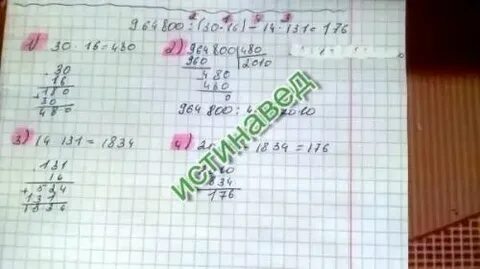 964800 : (30·16) - 14·131 = 176
1) 30·16=480
30
16
180
30
480
2) 964800 480
960 2010
480
480
0
964800 : 4 2010
3) 14 131 = 1834
131
+ 524
131
4) 1834 = 176
834
176
ИСТИНАВЕД